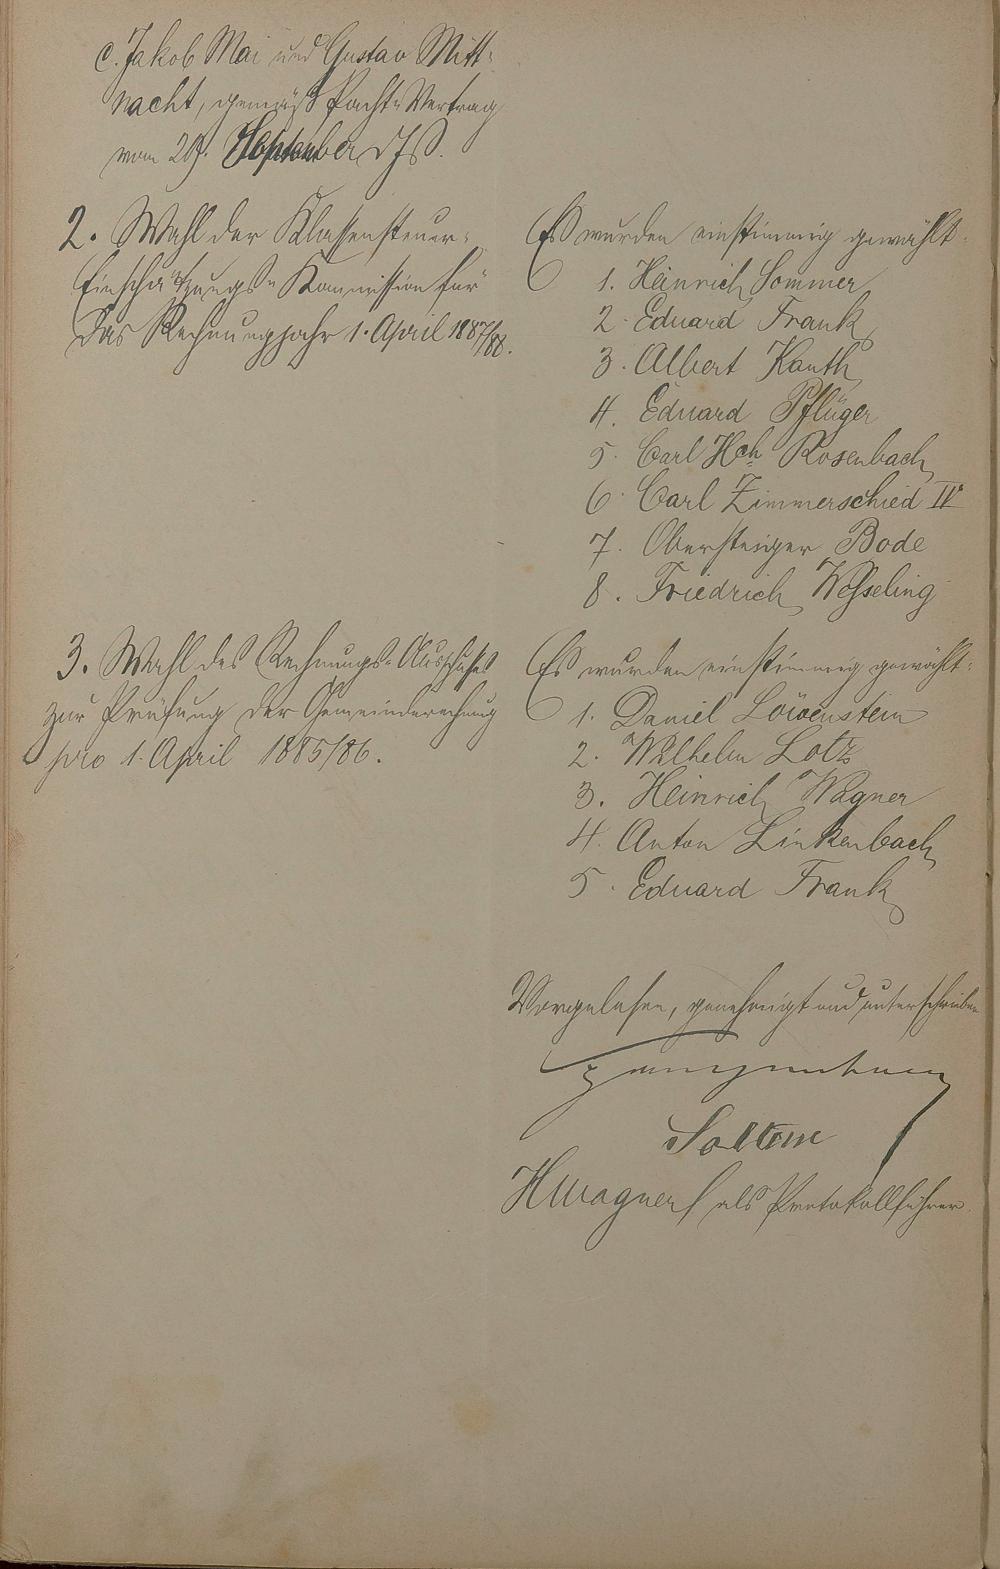 c. Jakob Mai und Gustav Mitt-
nacht, gemäß Pacht-Vertrag
vom 29. September d. Js.
2. Wahl der Klassensteuer-
Einschätzungs-Kommission für
das Rechnungsjahr 1. April 1887/88.
Es wurden einstimmig gewählt:
1. Heinrich Sommer
2. Eduard Frank
3. Albert Kauth
4. Eduard Pflüger
5. Carl Hch Rosenbach
6. Carl Zimmerschied IV.
7. Obersteiger Bode
8. Friedrich Wesseling
3. Wahl des Rechnungs-Ausschusses
zur Prüfung der Gemeinderechnung
pro 1. April 1885/86.
Es wurden einstimmig gewählt:
1. Daniel Löwenstein
2. Wilhelm Lotz
3. Heinrich Wagner
4. Anton Linkenbach
5. Eduard Frank
Vorgelesen, genehmigt und unterschrieben
HWagner als Protokollführer.